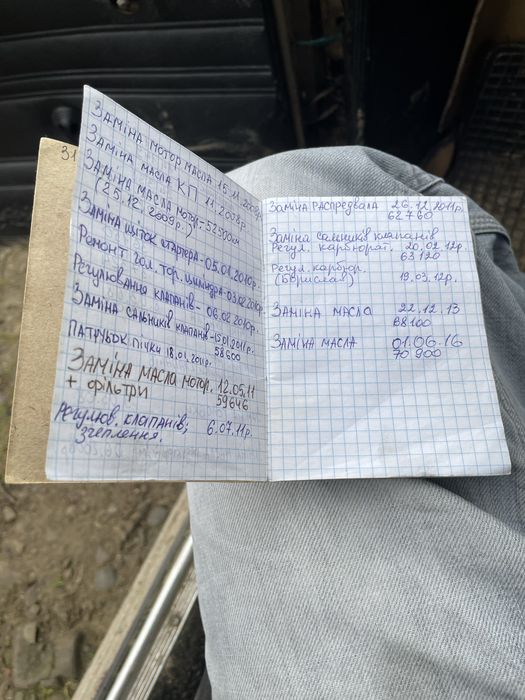 31
Заміна мотор масла 15.11.2008р.
Заміна масла КП 11.2008р
Заміна масла мотор-52500км
(25.12.2009р.)
Заміна щіток стартера-05.01.2010р.
Ремонт гол. тор. циліндра-03.02.2010р.
Регулювання клапанів- 06.02.2010р.
Заміна сальників клапанів-15.01.2011р.
58600
Патрубок пічки 18.01.2011р.
Заміна масла мотор. 12.05.11
+ фільтри 59646
Регулюв. клапанів; 6.07.11р.
зчеплення.
Заміна распредвала 26.12.2011р.
62760
Заміна сальників клапанів
Регул. карбюрат. 20.02.12р.
63120
Регул. карбюр.
(Борислав) 19.03.12р.
Заміна масла 22.12.13
68100
Заміна масла 01.06.16
70900